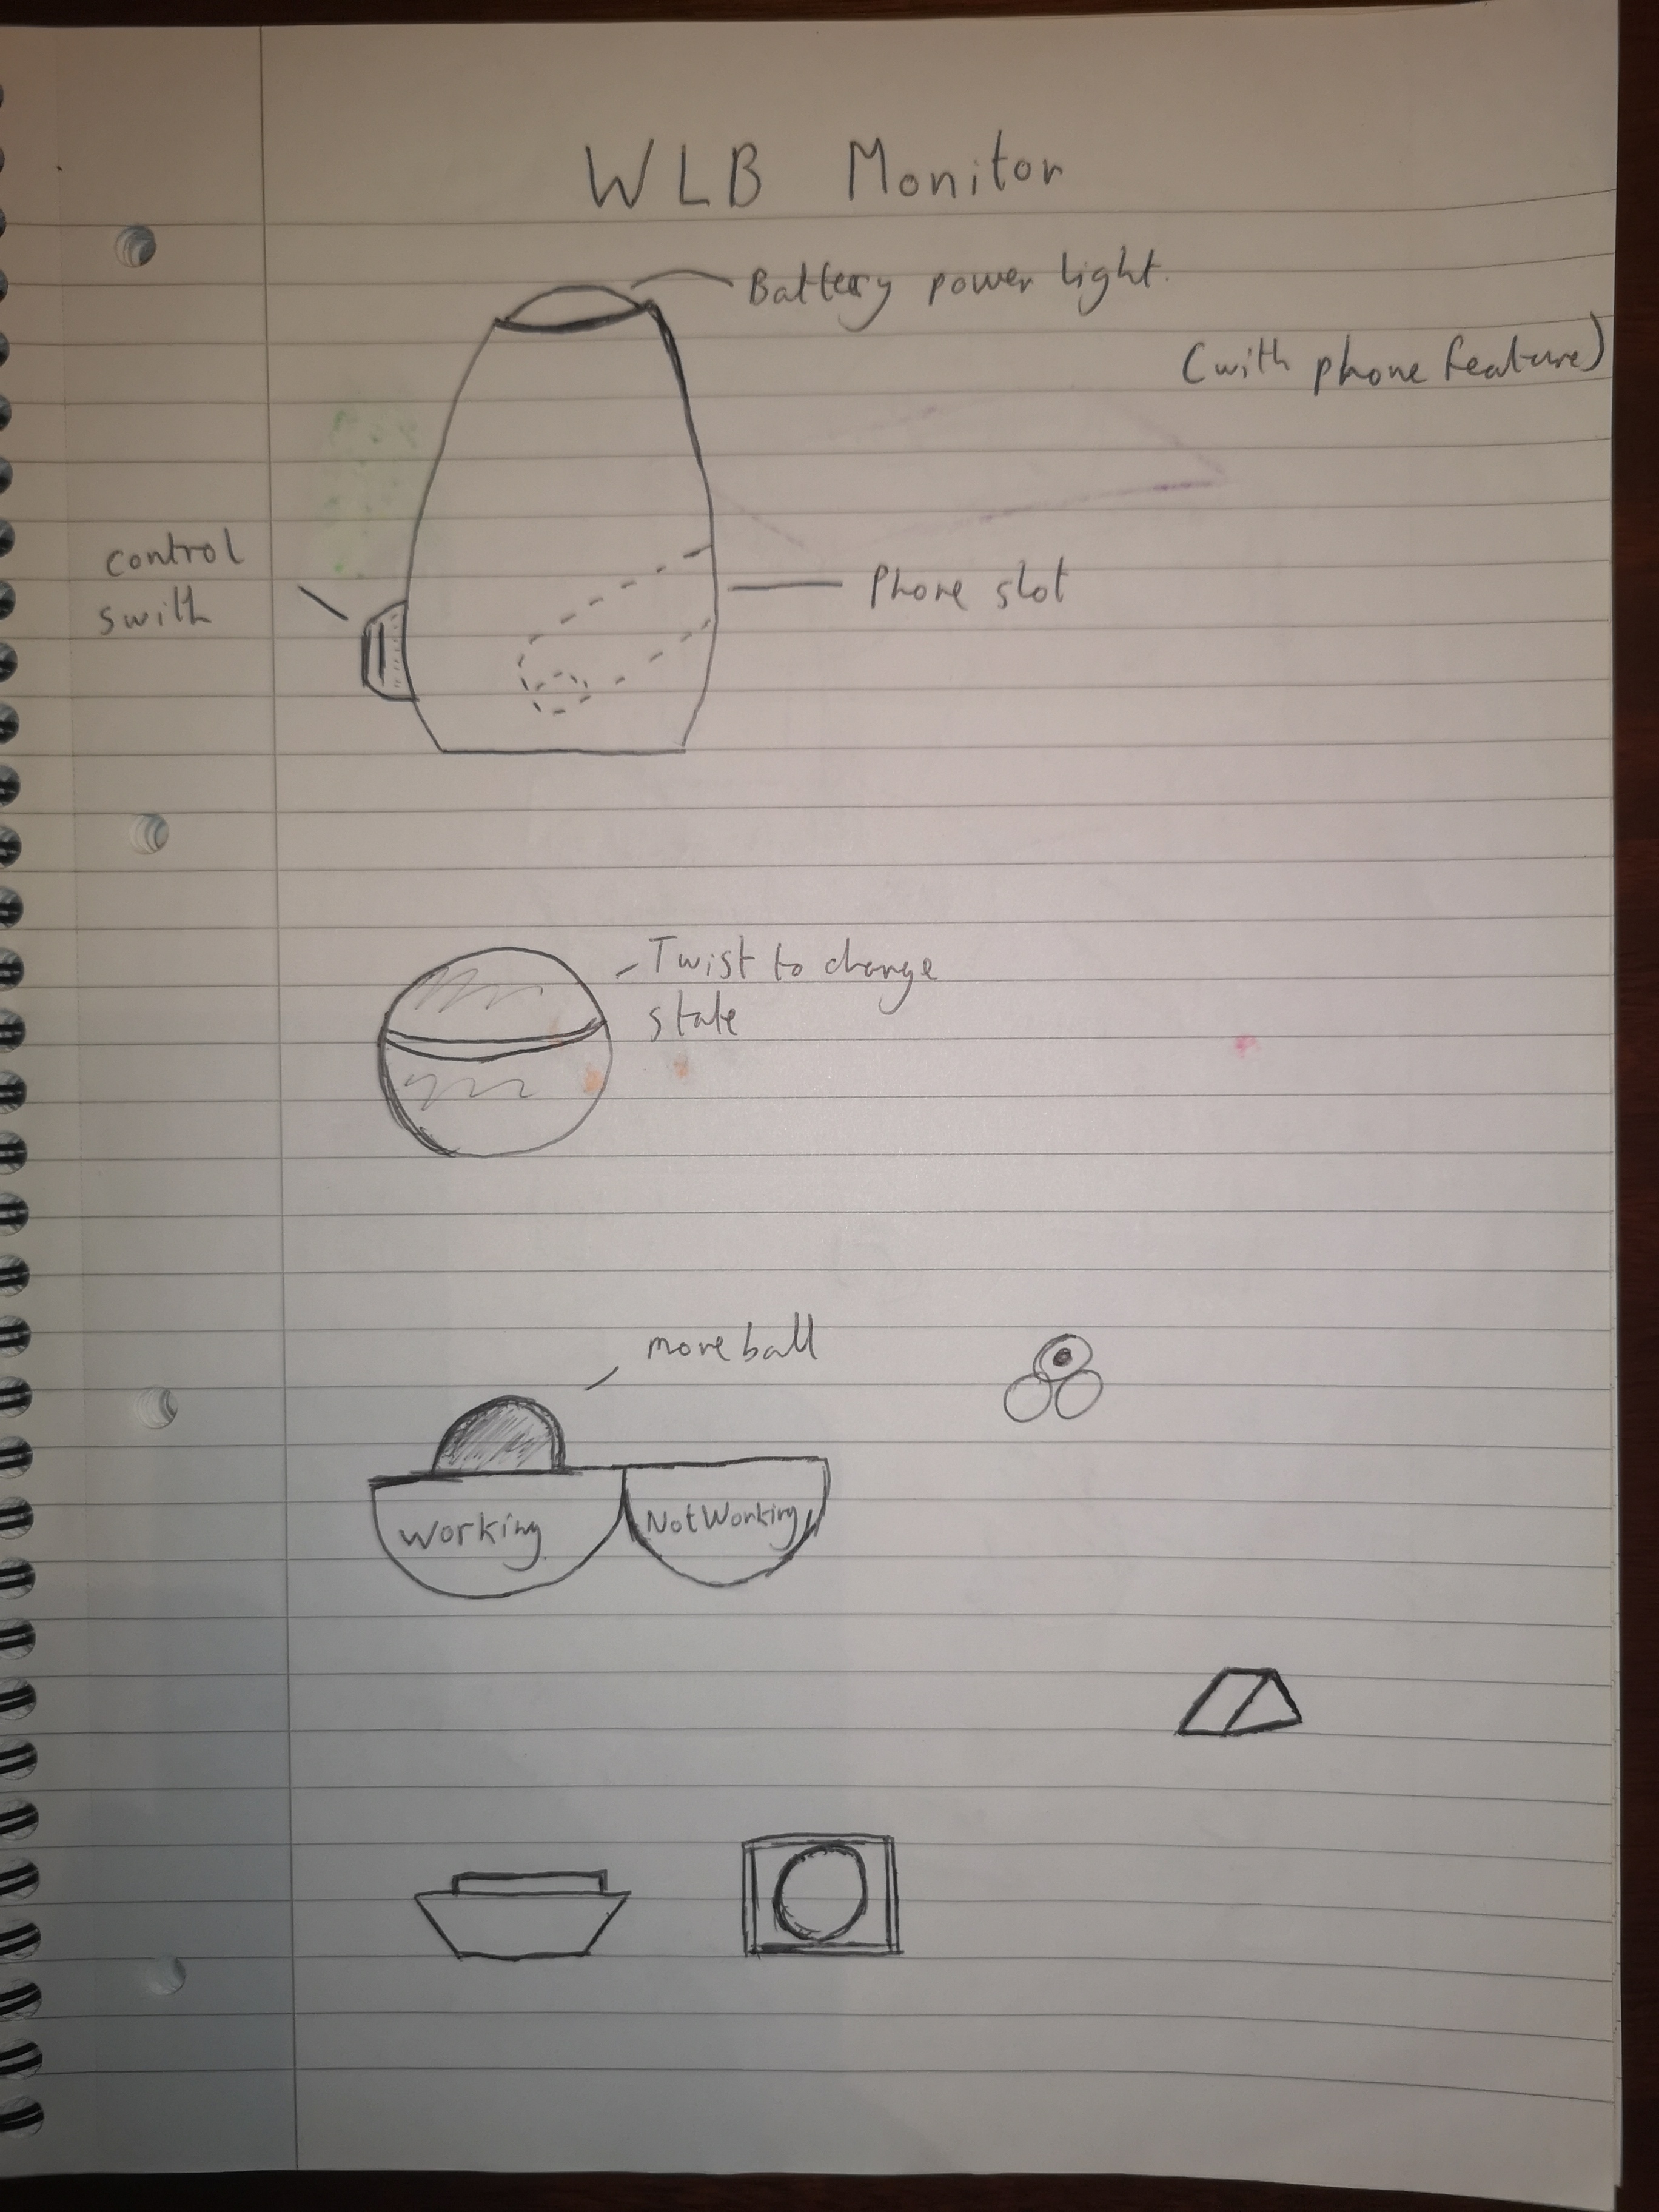 WLB Monitor
Battery power light.
(with phone feature)
control
swith
Phone slot
Twist to change
state
move ball
Working
Not Working